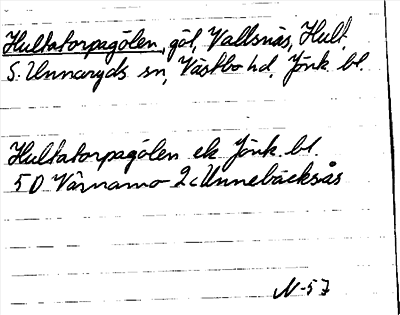 Hultatorpagölen, göl, Vallsnäs, Hult,
S. Unnaryds sn, Västbo hd, Jönk. bl.
Hultatorpagölen ek Jönk. bl.
5 D Värnamo 2c Unnebäcksås
N-57